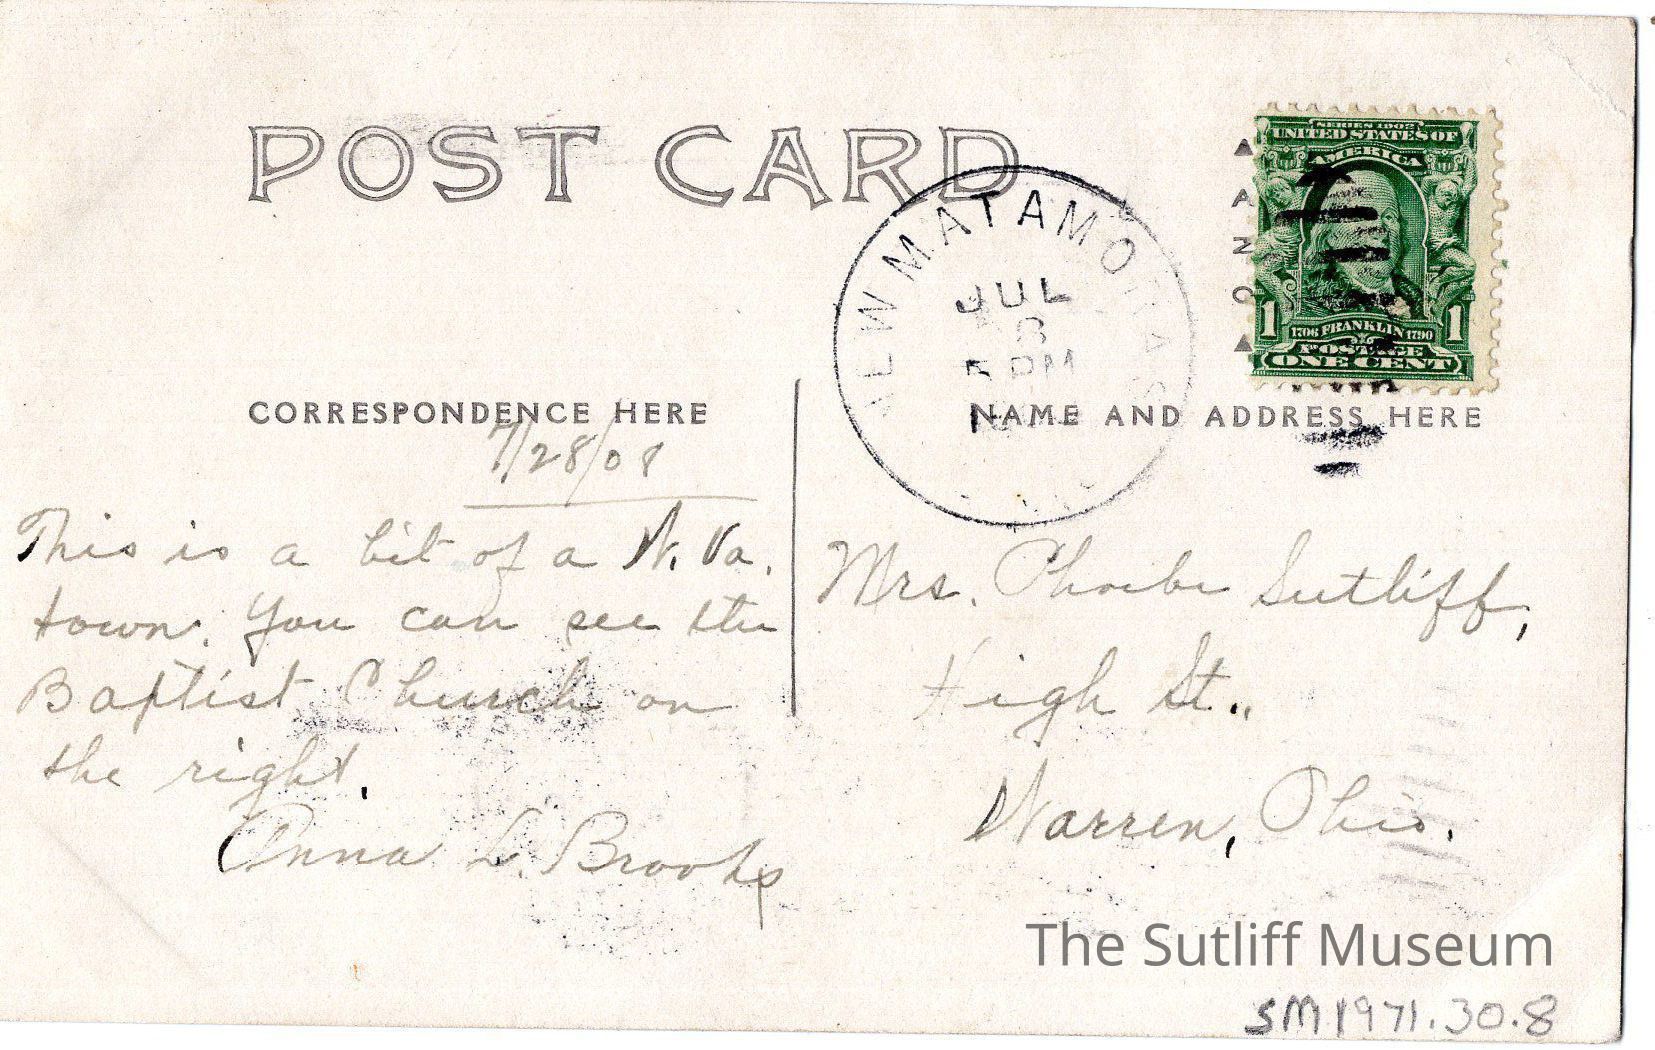 POST CARD
NEW MATAMORAS
JUL
8
5 PM
SERIES 1902
UNITED STATES OF
AMERICA
1 1706 FRANKLIN 1790 1
POSTAGE
ONE CENT
CORRESPONDENCE HERE
NAME AND ADDRESS HERE
7/28/08
This is a bit of a W. Va.
town. You can see the
Baptist Church on
the right.
Anna L. Brooks
Mrs. Phoebe Sutliff,
High St.,
Warren, Ohio.
The Sutliff Museum
SM1971.30.8